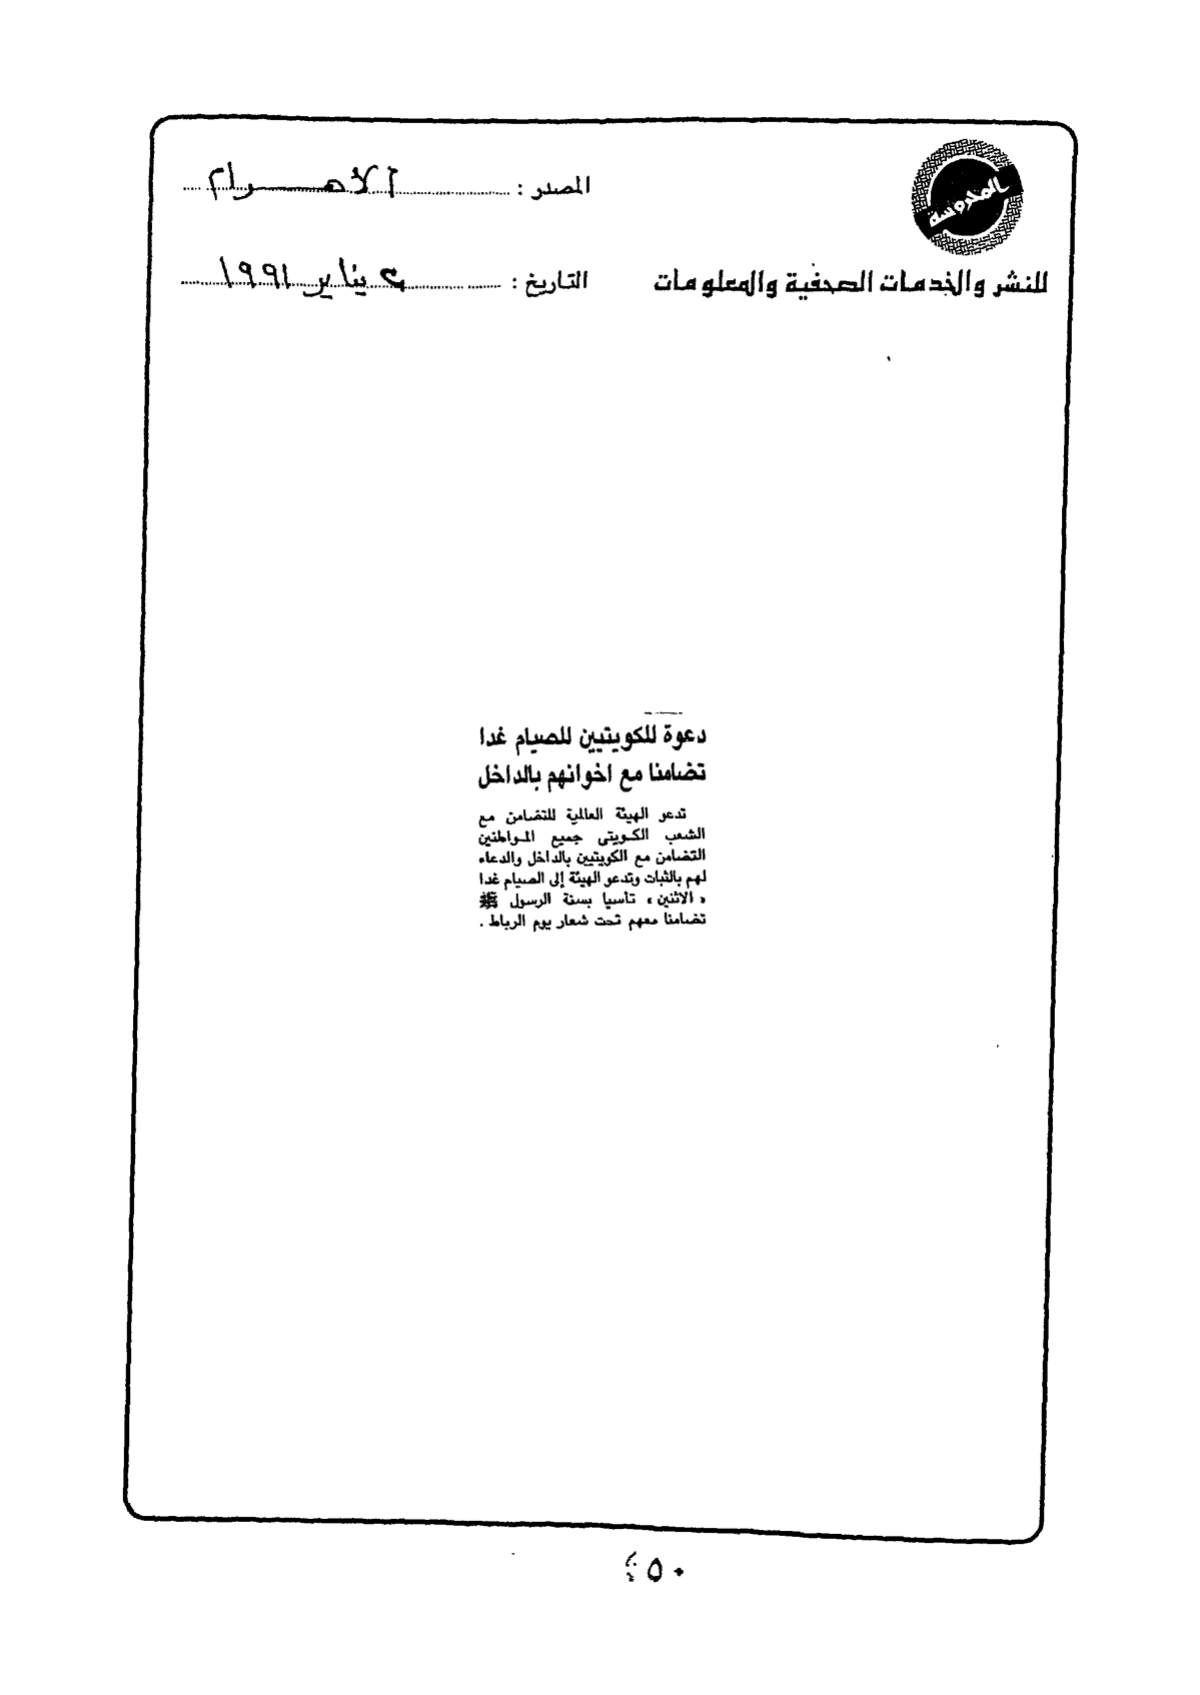 المحروسة
للنشر والخدمات الصحفية والمعلومات
المصدر : الأهرام
التاريخ : يناير ١٩٩١
دعوة للكويتيين للصيام غدا
تضامنا مع اخوانهم بالداخل
تدعو الهيئة العالمية للتضامن مع
الشعب الكويتى جميع المواطنين
التضامن مع الكويتيين بالداخل والدعاء
لهم بالثبات وتدعو الهيئة إلى الصيام غدا
« الاثنين » تأسيا بسنة الرسول ﷺ
تضامنا معهم تحت شعار يوم الرباط .
٤٥٠